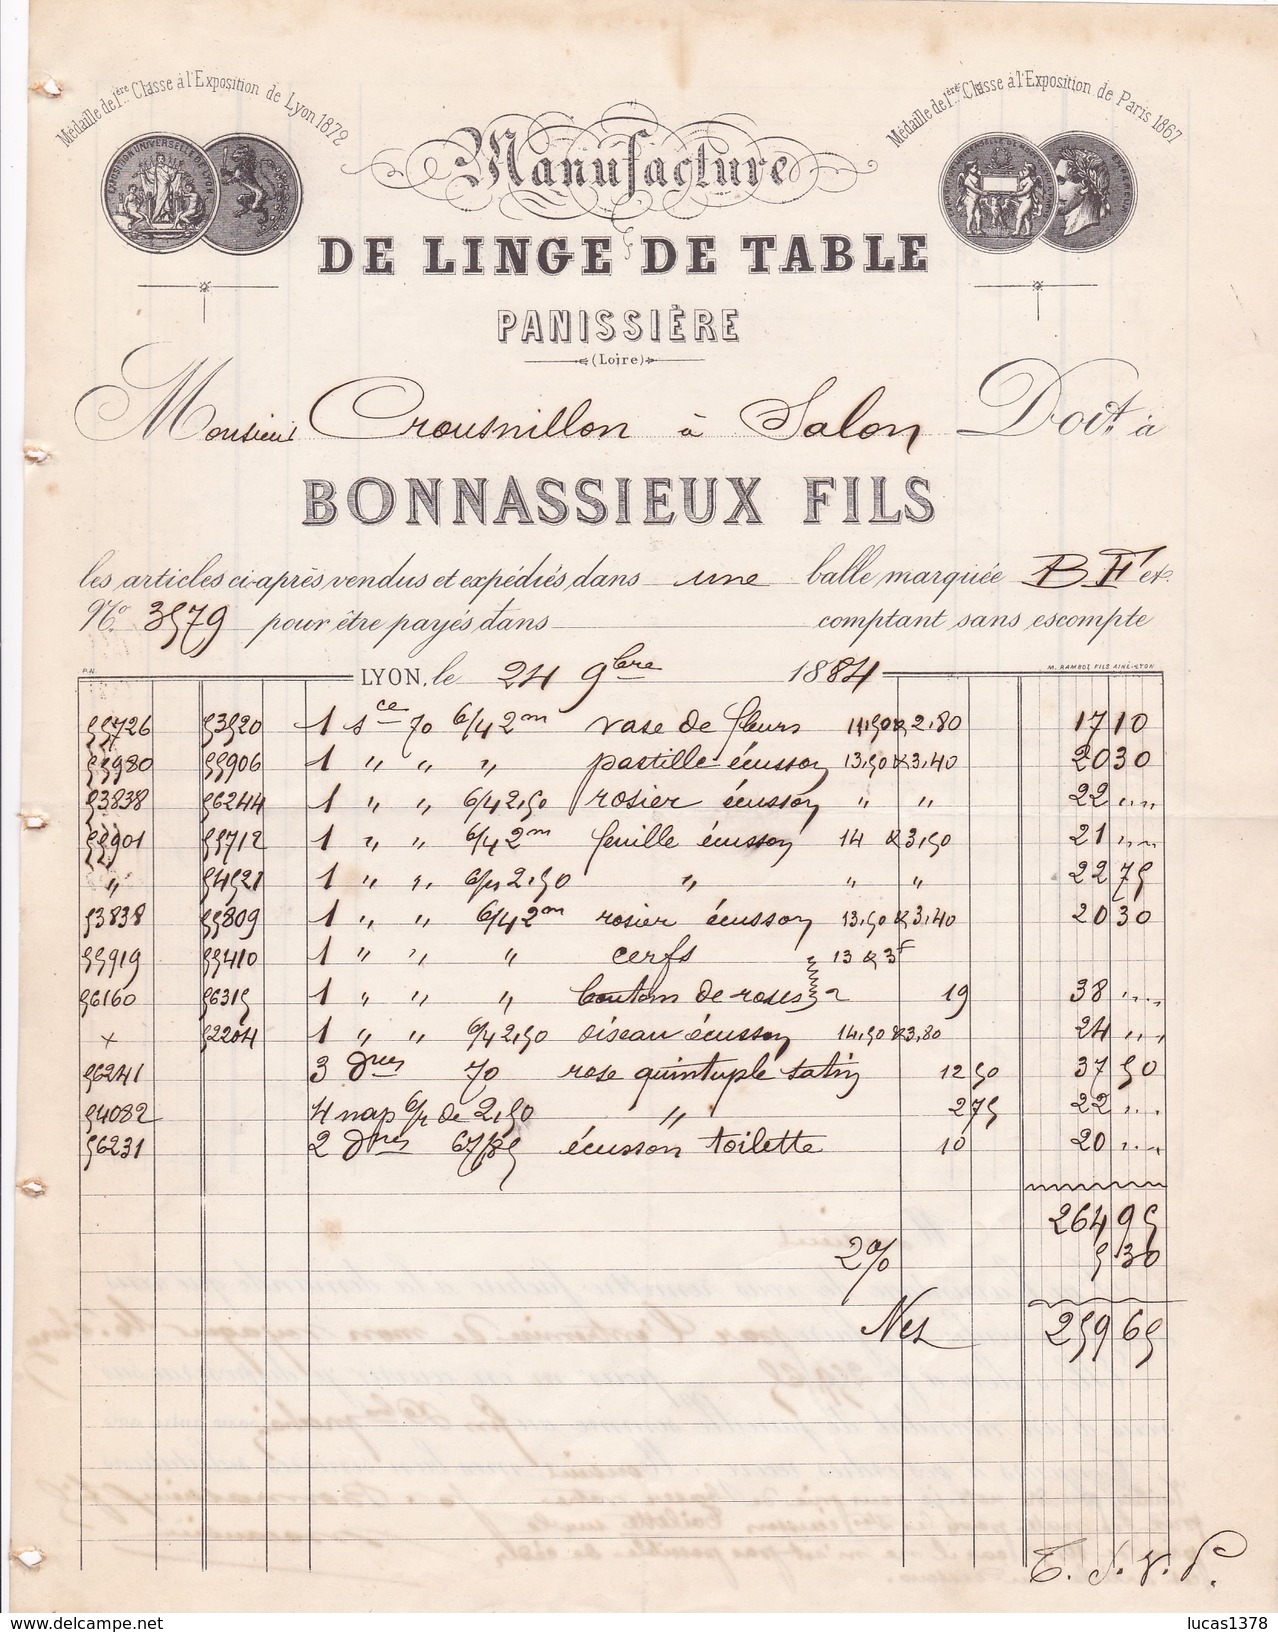 Médaille de 1ère Classe à l'Exposition de Lyon 1872
Médaille de 1ère Classe à l'Exposition de Paris 1867
EXPOSITION UNIVERSELLE DE LYON
Manufacture
DE LINGE DE TABLE
PANISSIÈRE
(Loire)
Monsieur Crousnillon à Salon Doit à
BONNASSIEUX FILS
les articles ci-après vendus et expédiés dans une balle marquée B F et
No. 3579 pour être payés dans comptant sans escompte
P.N. M. RAMBOZ FILS AINÉ-LYON
LYON, le 24 9bre 1884
55726 53520 1 sce 70 6/4 2m vase de fleurs 11,50 & 2.80 17 10
55980 55906 1 " " " pastille écusson 13,50 & 3,40 20 30
53838 56244 1 " " 6/4 2,50 rosier écusson " " 22 "
55901 55712 1 " " 6/4 2m feuille écusson 14 & 3,50 21 "
" 54521 1 " " 6/4 2,50 " " " 22 75
53838 55809 1 " " 6/4 2m rosier écusson 13,50 & 3,40 20 30
55919 55410 1 " " " cerfs 13 & 3f
56160 56315 1 " " " bouton de roses 2 19 38 "
x 52204 1 " " 6/4 2,50 oiseau écusson 14,50 & 3,80 24 "
56241 3 dnes 70 rose quintuple satin 12 50 37 50
54082 4 nap 6/4 de 2,50 " 2 75 22 "
56231 2 dnes 67/85 écusson toilette 10 20 "
264 95
2% 5 30
Net 259 65
T. S. V. P.
www.delcampe.net
lucas1378